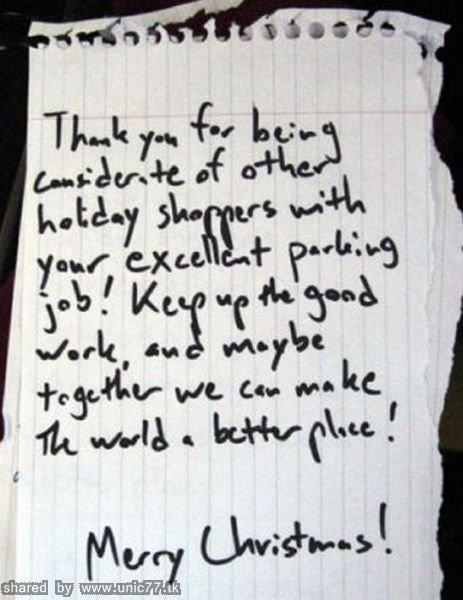 Thank you for being
considerate of other
holiday shoppers with
your excellent parking
job! Keep up the good
work, and maybe
together we can make
The world a better place!
Merry Christmas!
shared by www.unic77.tk